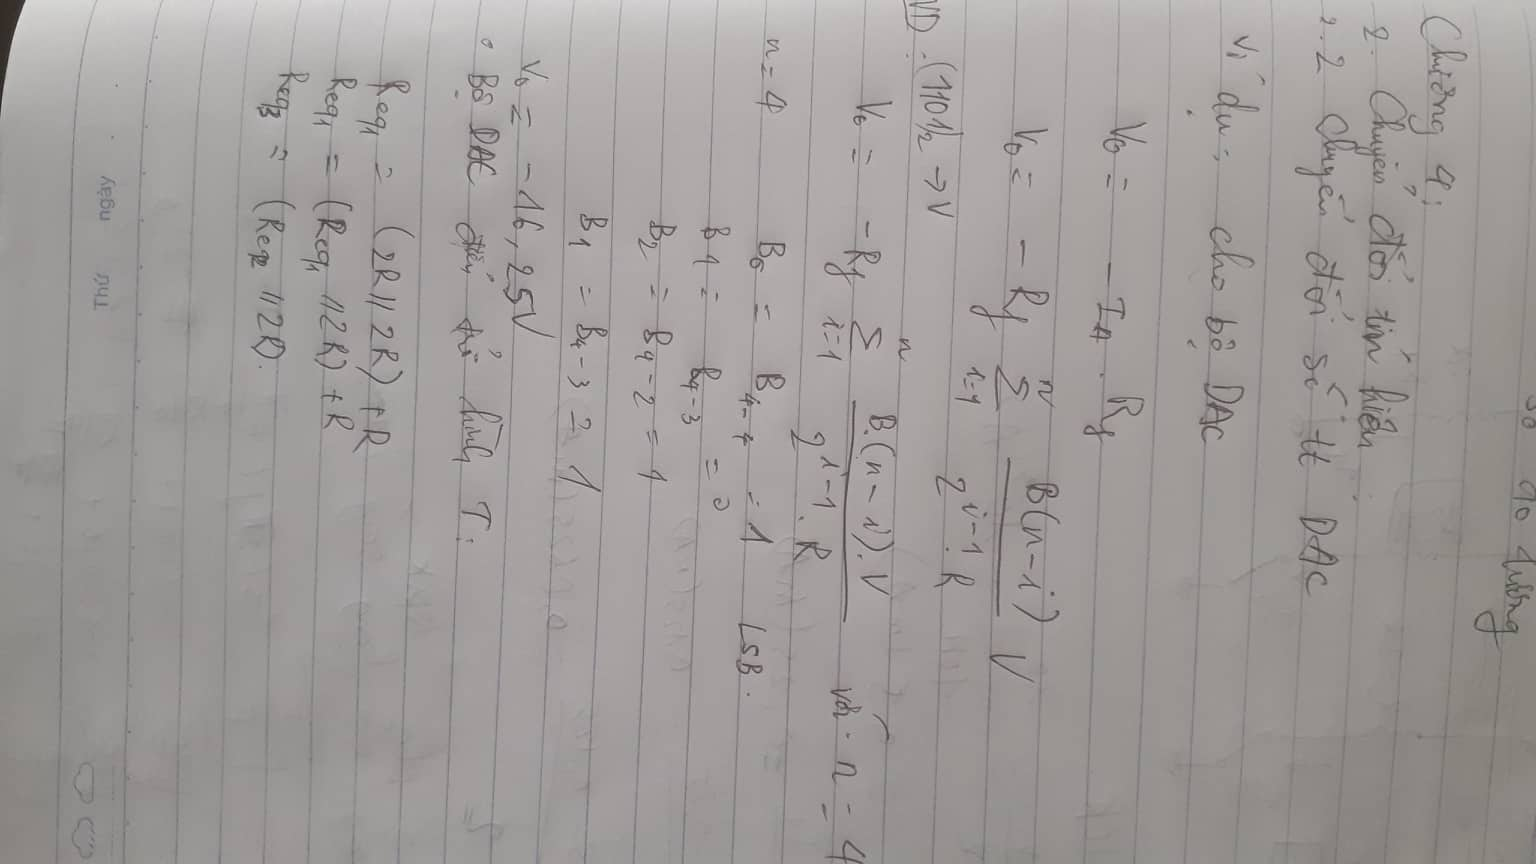 đo lường
Chương 4:
2. Chuyển đổi tín hiệu
2.2 chuyển đổi số tt DAC
Ví dụ: cho bộ DAC
V₀ = - I_A . R_f
V₀ = - R_f Σ_{i=1}^{n} B(n-i) / (2^{i-1} R) V
VD: (1101)₂ → V
V₀ = -R_f Σ_{i=1}^{n} B.(n-i).V / (2^{i-1}.R) với n = 4
n=4 B₀ = B₄₋₄ = 1 LSB.
B₁ = B₄₋₃ = 0
B₂ = B₄₋₂ = 1
B₁ = B₄₋₃ = 1
V₀ = -16,25V
• Bộ DAC điện trở hình T:
Req₁ = (2R//2R)+R
Req₁ = (Req₁ //2R)+R
Req₃ = (Req₂ //2R).
Thứ
ngày